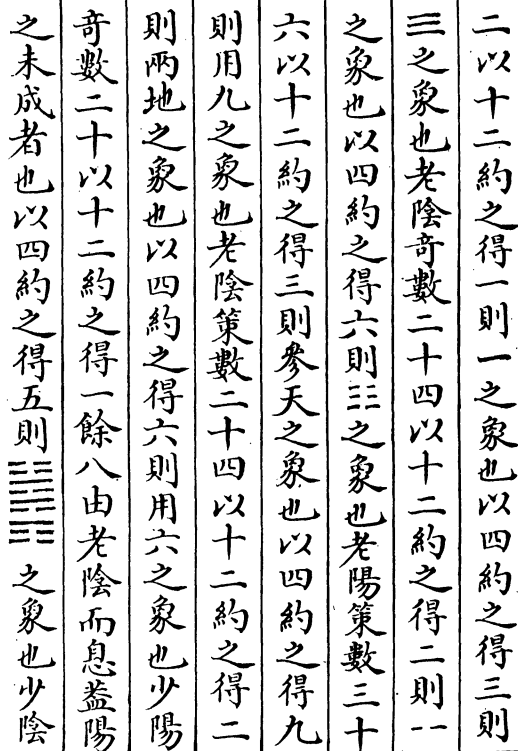 二以十二約之得一則一之象也以四約之得三則
☰之象也老陰奇數二十四以十二約之得二則⚋
之象也以四約之得六則☷之象也老陽策數三十
六以十二約之得三則參天之象也以四約之得九
則用九之象也老陰策數二十四以十二約之得二
則兩地之象也以四約之得六則用六之象也少陽
奇數二十以十二約之得一餘八由老陰而息葢陽
之未成者也以四約之得五則☳☵☶之象也少陰